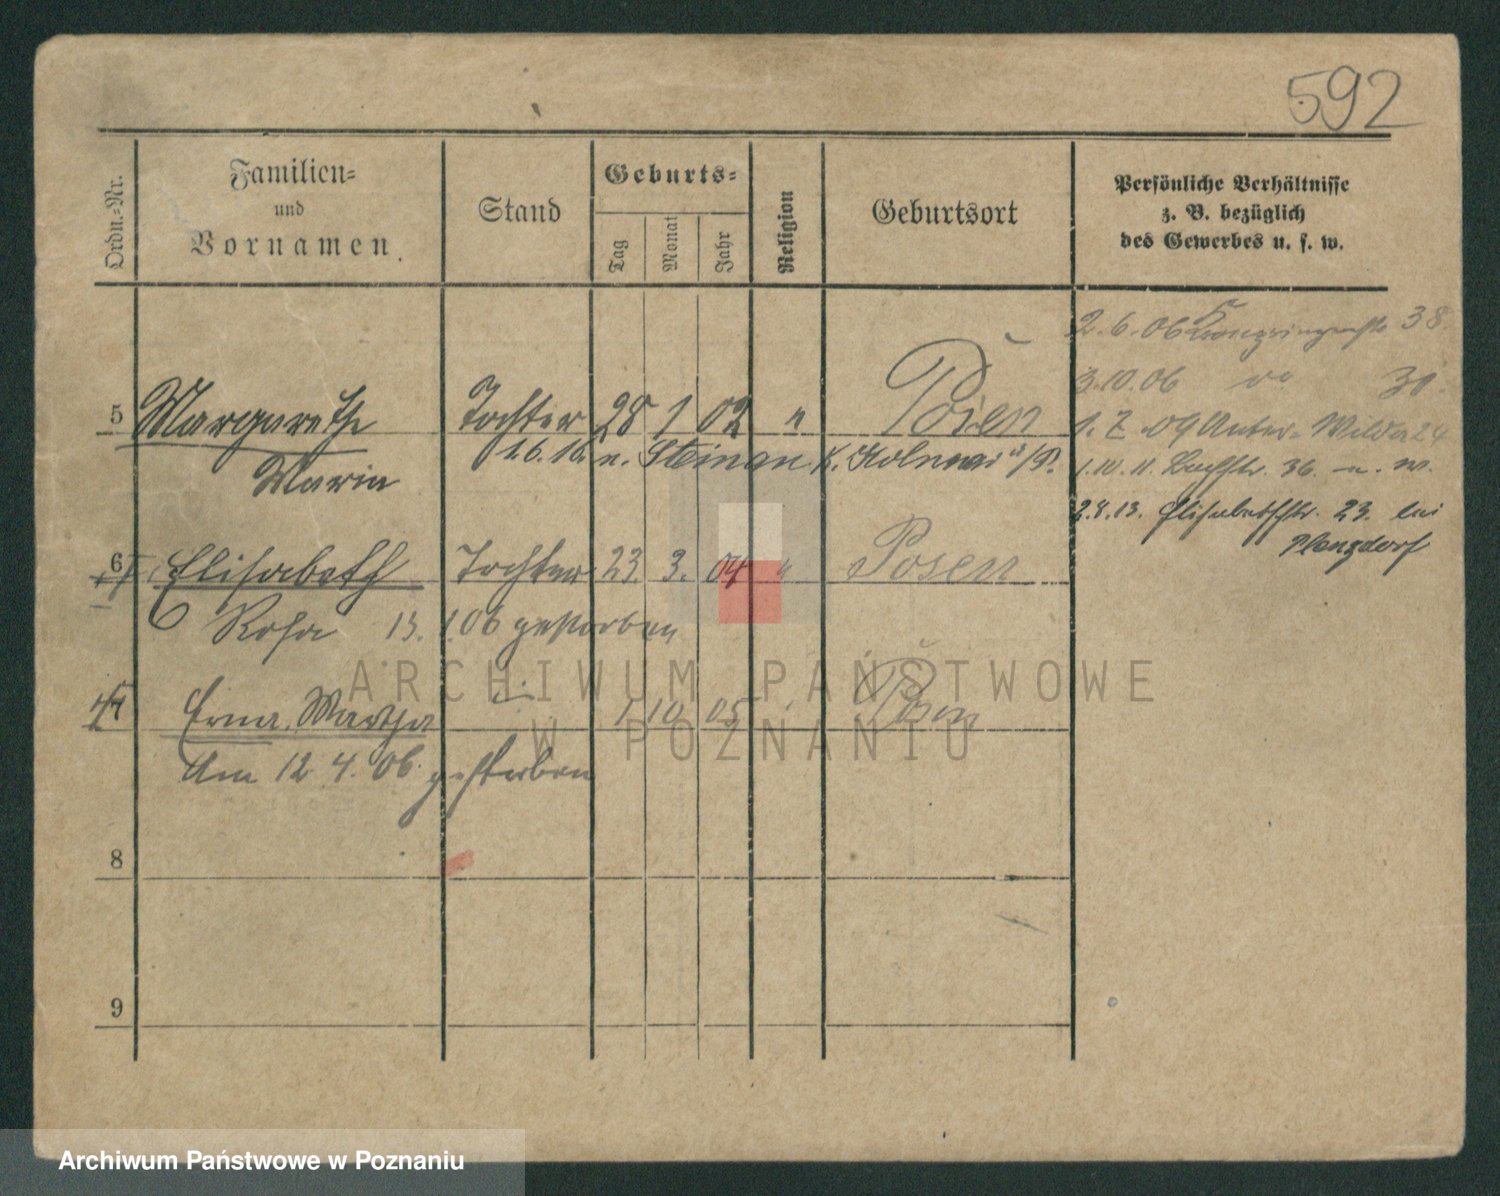 592
Ordn.-Nr.
Familien-
und
Vornamen.
Stand
Geburts-
Tag
Monat
Jahr
Religion
Geburtsort
Persönliche Verhältnisse
z. B. bezüglich
des Gewerbes u. s. w.
2.6.06 Kronprinzenstr. 38
3.10.06 do 30.
5 Margarethe Tochter 28 1 02 " Posen
1.7.09 Unter-Wilda 24
Maria 1.6.16. n. Steinau
1.10.11. Bachstr. 36.
2.8.13. Elisabethstr. 23. bei
6 Elisabeth Tochter 23. 3. 04 " Posen
Rosa 13.1.06 gestorben
7 Erna Martha 1 10 05 Posen
Am 12.4.06. gestorben
8
9
ARCHIWUM PAŃSTWOWE
W POZNANIU
Archiwum Państwowe w Poznaniu